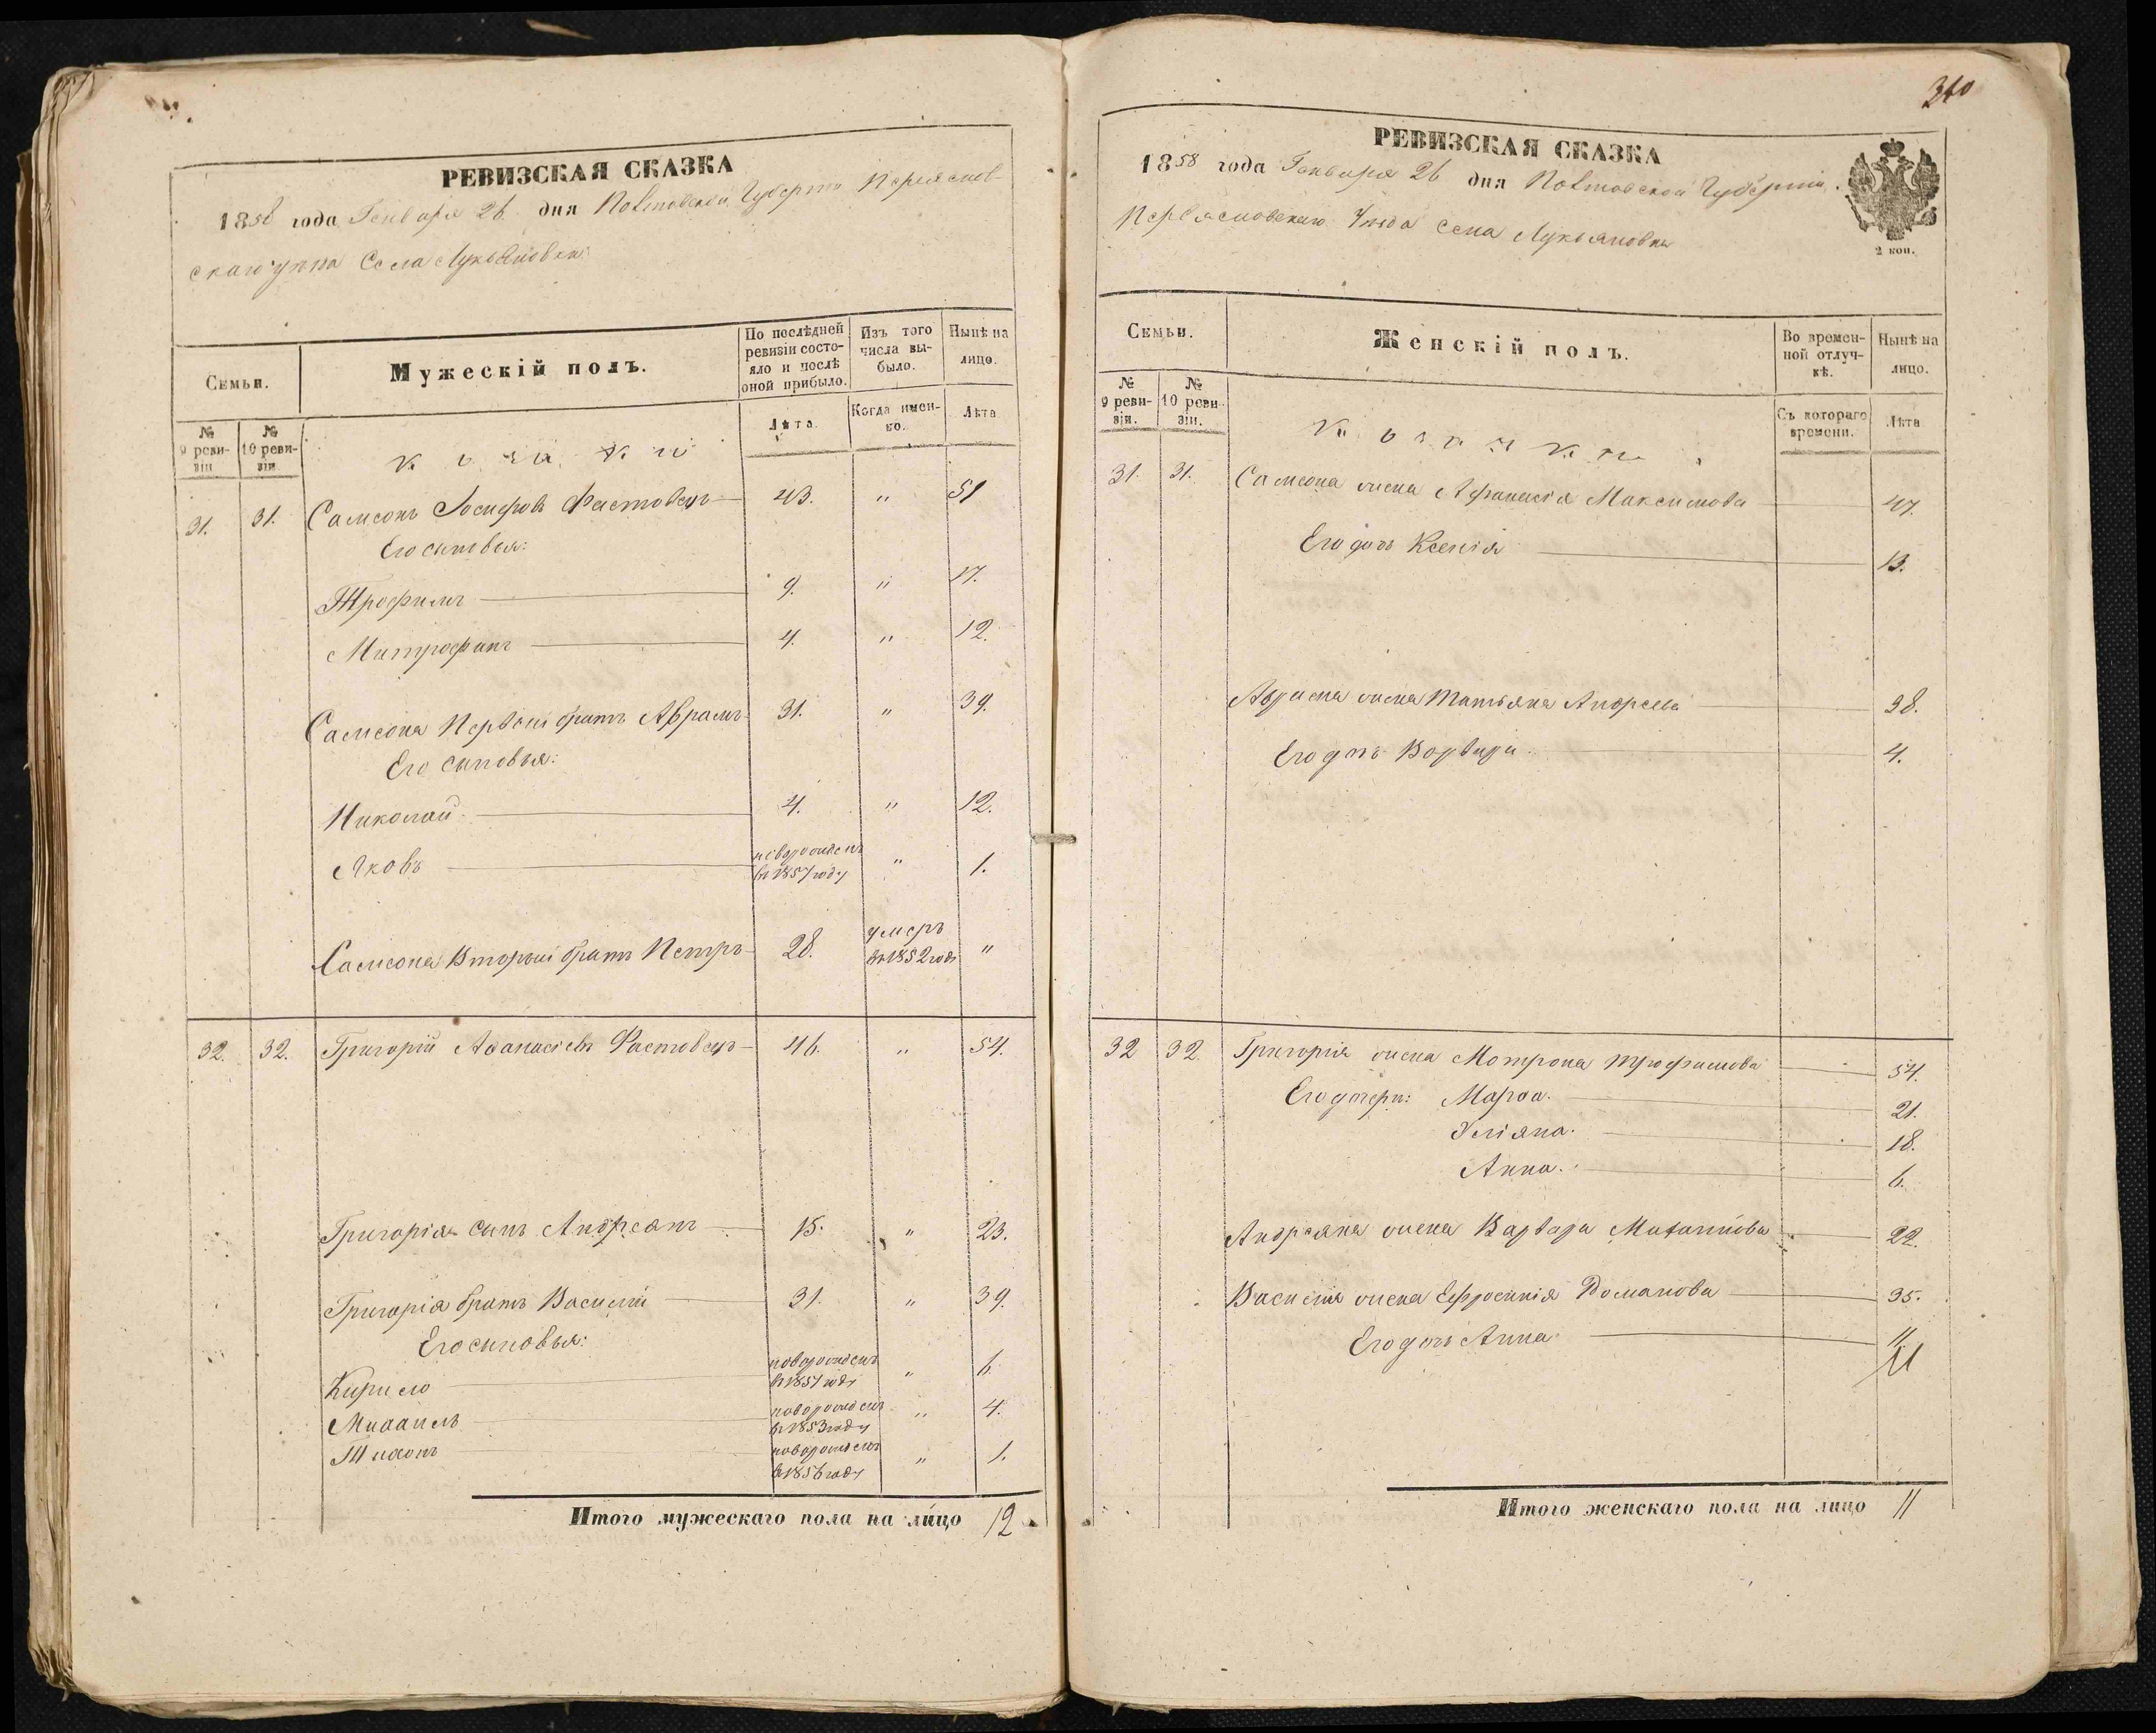 РЕВИЗСКАЯ СКАЗКА
1858 года Генваря 26 дня Полтавской Губерніи Переяслав-
скаго уезда Села Лукьяновки
Семьи.
Мужескій полъ.
По послѣдней ревизіи состояло и послѣ оной прибыло.
Изъ того числа выбыло.
Нынѣ на лицо.
№ 9 ревизіи
№ 10 ревизіи
Лѣта.
Когда именно.
Лѣта
Козаки
31. 31. Самсонъ Іосифовъ Фастовецъ 43. " 51
Его сыновья:
Трофимъ 9. " 17.
Митрофанъ 4. " 12.
Самсона Первый братъ Аврамъ 31. " 39.
Его сыновья:
Николай 4. " 12.
Яковъ новорожденъ в 1857 году " 1.
Самсона Вторый братъ Петръ 28. умеръ въ 1852 годе "
32. 32. Григорій Аѳанасіевъ Фастовецъ 46. " 54.
Григорія сынъ Андреянъ 15. " 23.
Григорія братъ Василій 31. " 39.
Его сыновья:
Кирило новорожденъ в 1851 годе " 6.
Михаилъ новорожденъ в 1853 году " 4.
Тихонъ новорожденъ в 1856 году " 1.
Итого мужескаго пола на лицо 12
310
РЕВИЗСКАЯ СКАЗКА
1858 года Генваря 26 дня Полтавской Губерніи
Переясловскаго Уезда Села Лукьяновки
2 коп.
Семьи.
Женскій полъ.
Во временной отлучкѣ.
Нынѣ на лицо.
№ 9 ревизіи.
№ 10 ревизіи.
Съ котораго времени.
Лѣта
Козачки
31. 31. Самсона жена Афанасія Максимова 47.
Его дочь Ксенія 13.
Аврама жена Татьяна Андреева 38.
Его дочь Варвара 4.
32 32 Григорія жена Мотрона Трофимова 54.
Его дочери: Марѳа. 21.
Уліяна. 18.
Анна. 6.
Андреяна жена Варвара 22.
Василія жена Ефросинія Романова 35.
Его дочь Анна 11
Итого женскаго пола на лицо 11